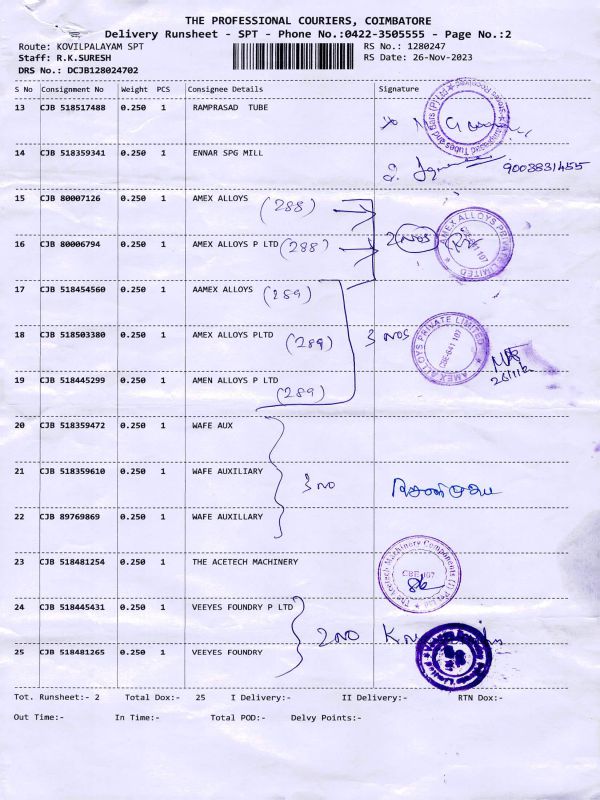 THE PROFESSIONAL COURIERS, COIMBATORE
Delivery Runsheet - SPT - Phone No.:0422-3505555 - Page No.:2
Route: KOVILPALAYAM SPT RS No.: 1280247
Staff: R.K.SURESH RS Date: 26-Nov-2023
DRS No.: DCJB128024702
S No Consignment No Weight PCS Consignee Details Signature
13 CJB 518517488 0.250 1 RAMPRASAD TUBE
14 CJB 518359341 0.250 1 ENNAR SPG MILL 9003831455
15 CJB 80007126 0.250 1 AMEX ALLOYS (288)
16 CJB 80006794 0.250 1 AMEX ALLOYS P LTD (288) 2 NOS AMEX ALLOYS PRIVATE LIMITED
17 CJB 518454560 0.250 1 AAMEX ALLOYS (289)
18 CJB 518503380 0.250 1 AMEX ALLOYS PLTD (289) 3 NOS AMEX ALLOYS PRIVATE LIMITED CBE-641 107
19 CJB 518445299 0.250 1 AMEN ALLOYS P LTD (289)
20 CJB 518359472 0.250 1 WAFE AUX
21 CJB 518359610 0.250 1 WAFE AUXILIARY 3 NO
22 CJB 89769869 0.250 1 WAFE AUXILLARY
23 CJB 518481254 0.250 1 THE ACETECH MACHINERY The Acetech Machinery Components (I) Pvt Ltd
24 CJB 518445431 0.250 1 VEEYES FOUNDRY P LTD 2 NO
25 CJB 518481265 0.250 1 VEEYES FOUNDRY
Tot. Runsheet:- 2 Total Dox:- 25 I Delivery:- II Delivery:- RTN Dox:-
Out Time:- In Time:- Total POD:- Delvy Points:-